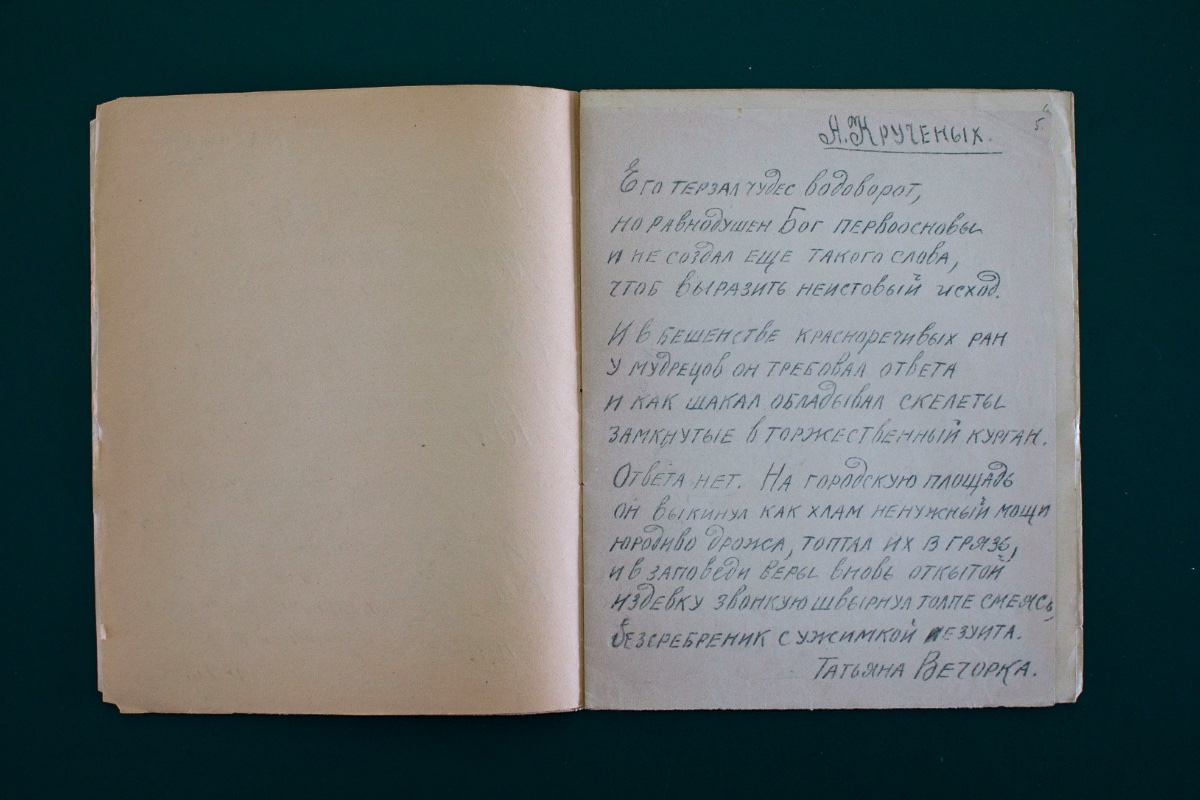 5.
А. Крученых.
Его терзал чудес водоворот,
но равнодушен Бог первоосновы
и не создал еще такого слова,
чтоб выразить неистовый исход.
И в бешенстве красноречивых ран
у мудрецов он требовал ответа
и как шакал обладывал скелеты
замкнутые в торжественный курган.
Ответа нет. На городскую площадь
он выкинул как хлам ненужный мощи
юродиво дрожа, топтал их в грязь,
и в заповеди веры вновь откытой
издевку звонкую швырнул толпе смеясь,
безсребреник с ужимкой иезуита.
Татьяна Вечорка.